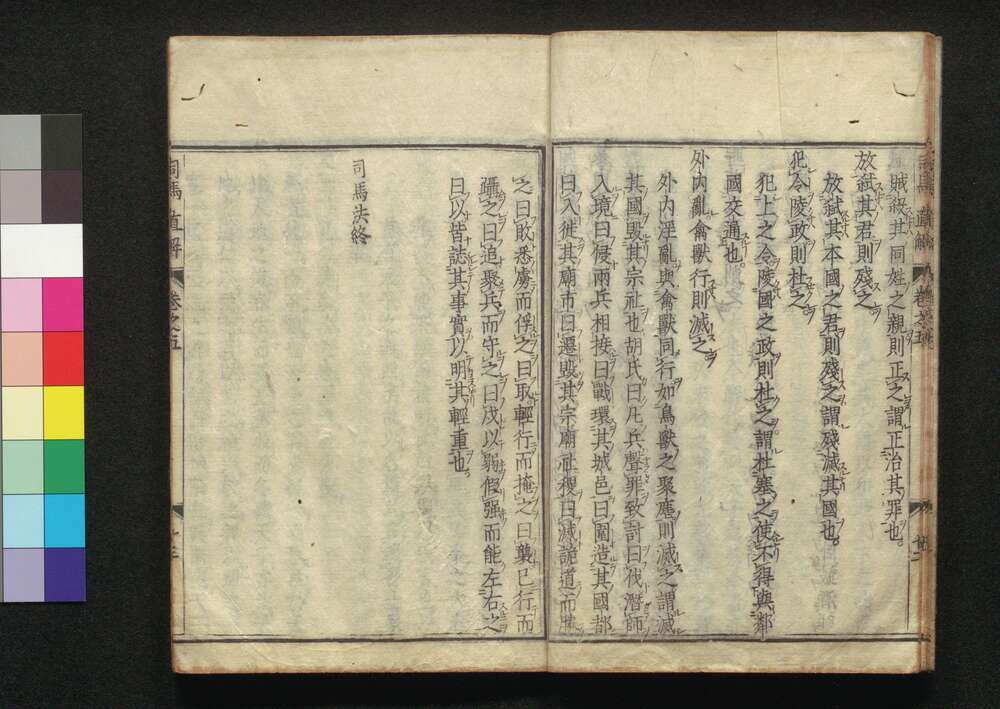 賊殺其同姓之親則正之謂正治其罪也
放弑其君則殘之
放弑其本國之君則殘之謂殘滅其國也
犯令陵政則杜之
犯上之令陵國之政則杜之謂杜塞之使不得與鄰
國交通也
外内亂禽獸行則滅之
外内淫亂與禽獸同行如鳥獸之聚麀則滅之謂滅
其國毀其宗社也胡氏曰凡兵聲罪致討曰伐潛師
入境曰侵兩兵相接曰戰環其城邑曰圍造其國都
曰入徙其廟市曰遷毀其宗廟社稷曰滅詭道而勝
之曰敗悉虜而俘之曰取輕行而掩之曰襲已行而
躡之曰追聚兵而守之曰戍以弱假强而能左右之
曰以皆誌其事實以明其輕重也
司馬法終
司馬直解
卷之五